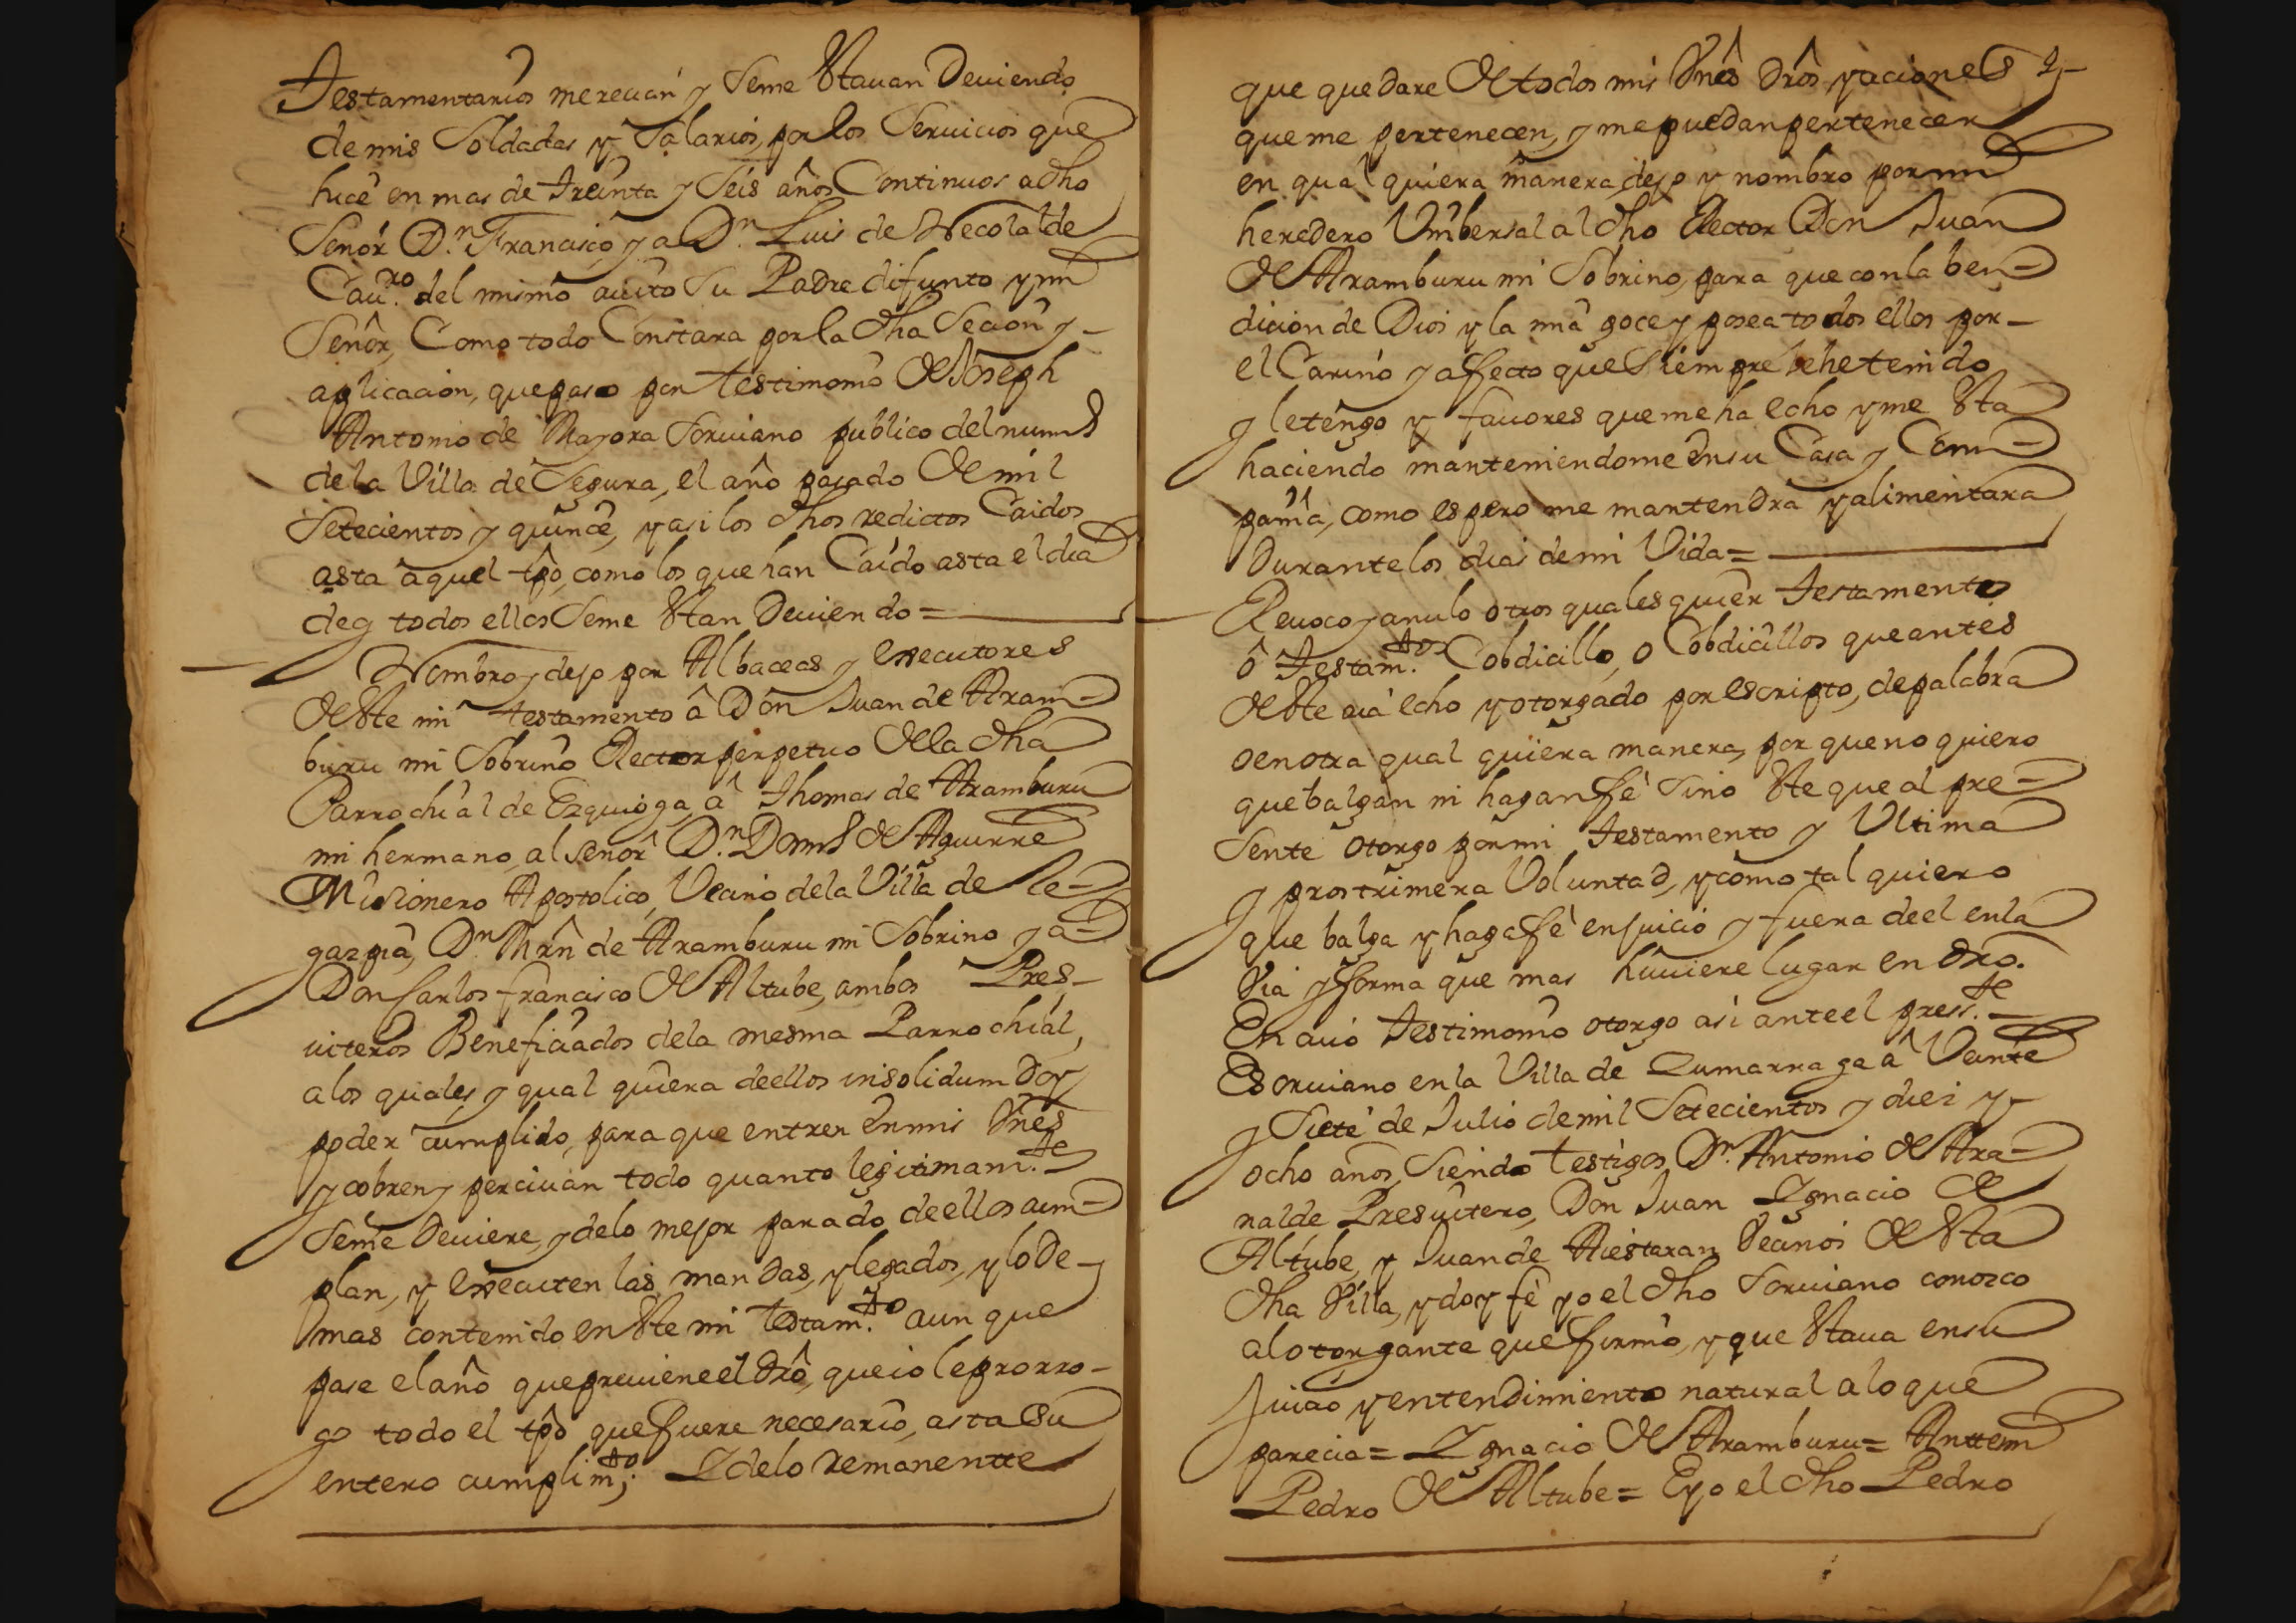 Testamentarios mereuan y Seme Estauan Deuiendo
de mis Soldadas y Salarios, por los Seruicios que
hice en mas de treinta y Seis años Continuos a dho
Señor D.n Francisco, y a D.n Luis de Necolalde
Cau.ro del mismo auito Su Padre difunto y mi
Señor, Como todo Constara por la dha Secion y
aplicacion, que paso por testimonio de Joseph
Antonio de Mayora Scruiano publico del num
de la Villa de Segura, el año pasado de mil
Setecientos y quince, y asi los dhos redictos Caidos
asta aquel tpo, como los que han Caido asta el dia
de oy todos ellos Seme Estan Deuiendo =
Nombro y dejo por Albaceas y executores
de Este mi testamento â Don Juan de Aram=
buru mi Sobrino Rector perpetuo de la dha
Parrochial de Ezquioga, â Thomas de Aramburu
mi hermano, al Señor D.n Dom.s de Aguirre
Misionero Apostolico, Vecino de la Villa de Le=
gazpia, D.n Mrn de Aramburu mi Sobrino y a
Don Carlos francisco de Altube, ambos Pres-
uiteros Beneficiados de la mesma Parrochial,
a los quales y qual quiera de ellos insolidum Doy
poder cumplido, para que entren En mis Vnes
y cobren y perciuan todo quanto legitimam.te
Seme Deuiere, y de lo mejor parado de ellos cum=
plan, y executen las mandas, y legados, y lo De-
mas contenido en Este mi testam.to aun que
pase el año que preuiene el dro, que io le prorro-
go todo el tpo que fuere necesario, asta Su
entero cumplim.to; I de lo remanente
que quedare de todos mis Vnes dros y aciones 2
que me pertenecen, y me puedan pertenecer
en qual quiera manera, dejo y nombro por mi
heredero Vnibersal al dho Rector Don Juan
de Aramburu mi Sobrino, para que con la ben=
dicion de Dios y la mia goce y posea todos ellos por
el Cariño y affecto que Siempre le he tenido
y le tengo y fauores que me ha echo y me Esta
haciendo manteniendome En su Casa y Com=
pañia, como espero me mantendra y alimentara
Durante los dias de mi Vida =
Reuoco y anulo otros quales quier testamento
ô testam.tos Cobdicillo, o Cobdicillos que antes
de Este aia echo y otorgado por escripto, de palabra
o en otra qual quiera manera, por que no quiero
que balgan ni hagan fe Sino Este que al pre=
Sente otorgo por mi testamento y Vltima
y prostrimera Voluntad, y como tal quiero
que balga y haga fe en juicio y fuera de el en la
Via y forma que mas huuiere lugar en dro.
En cuio testimonio otorgo asi ante el press.te
Escruiano en la Villa de Zumarraga â Veinte
y Siete de Julio de mil Setecientos y diez y
ocho años, Siendo testigos D.n Antonio de Ara=
nalde Presuitero, Don Juan Ignacio de
Altube, y Juan de Aiestaran Vecinos de Esta
dha Villa, y doy fe yo el dho Scruiano conozco
al otorgante que firmo, y que Estaua en su
juicio y entendimiento natural a lo que
parecia = Ignacio de Aramburu = Anttemi
Pedro de Altube = E yo el dho Pedro